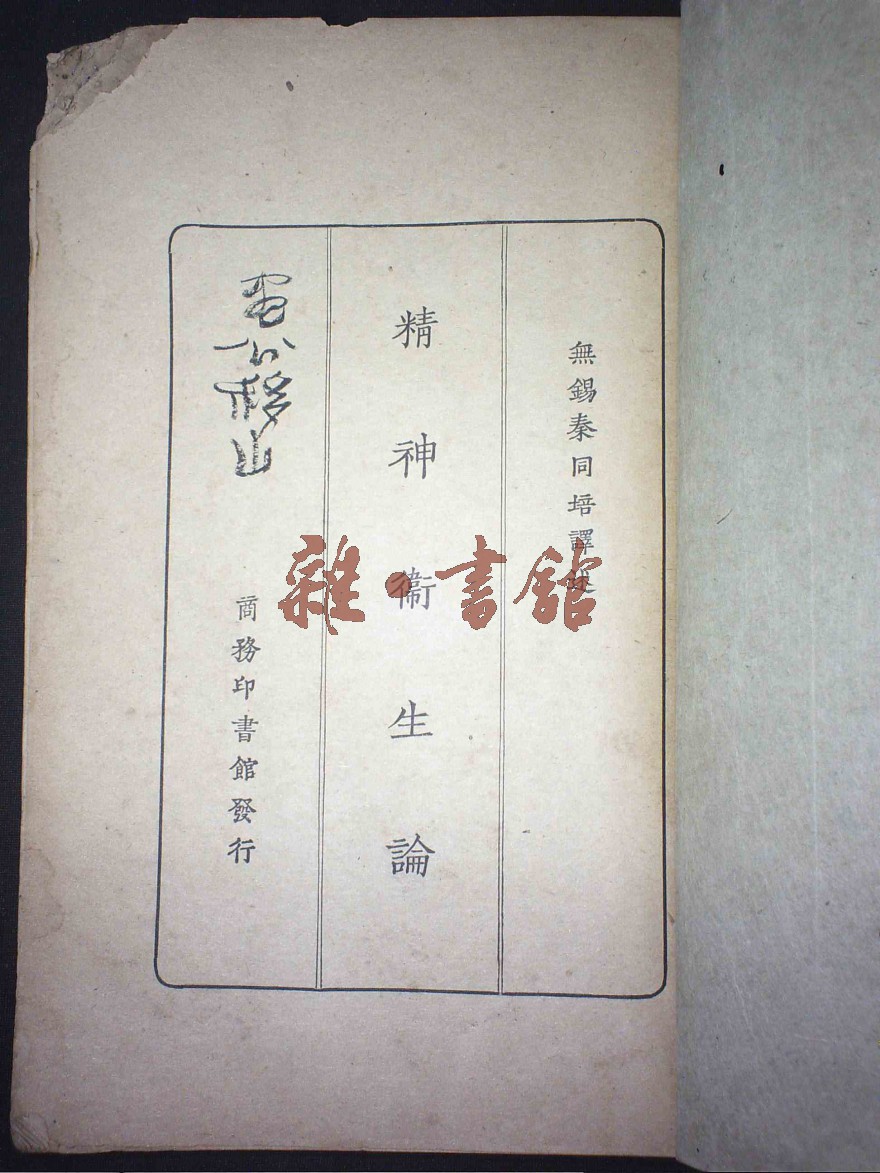 無錫秦同培譯述
精神衞生論
商務印書館發行
公移山
雜·書館